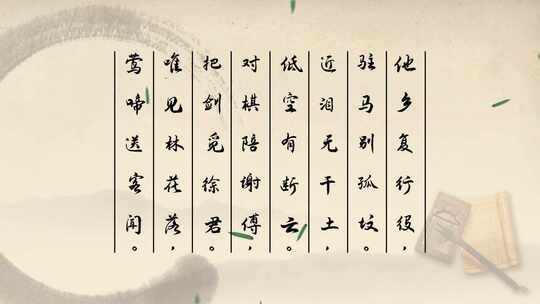 他乡复行役，
驻马别孤坟。
近泪无干土，
低空有断云。
对棋陪谢傅，
把剑觅徐君。
唯见林花落，
莺啼送客闻。